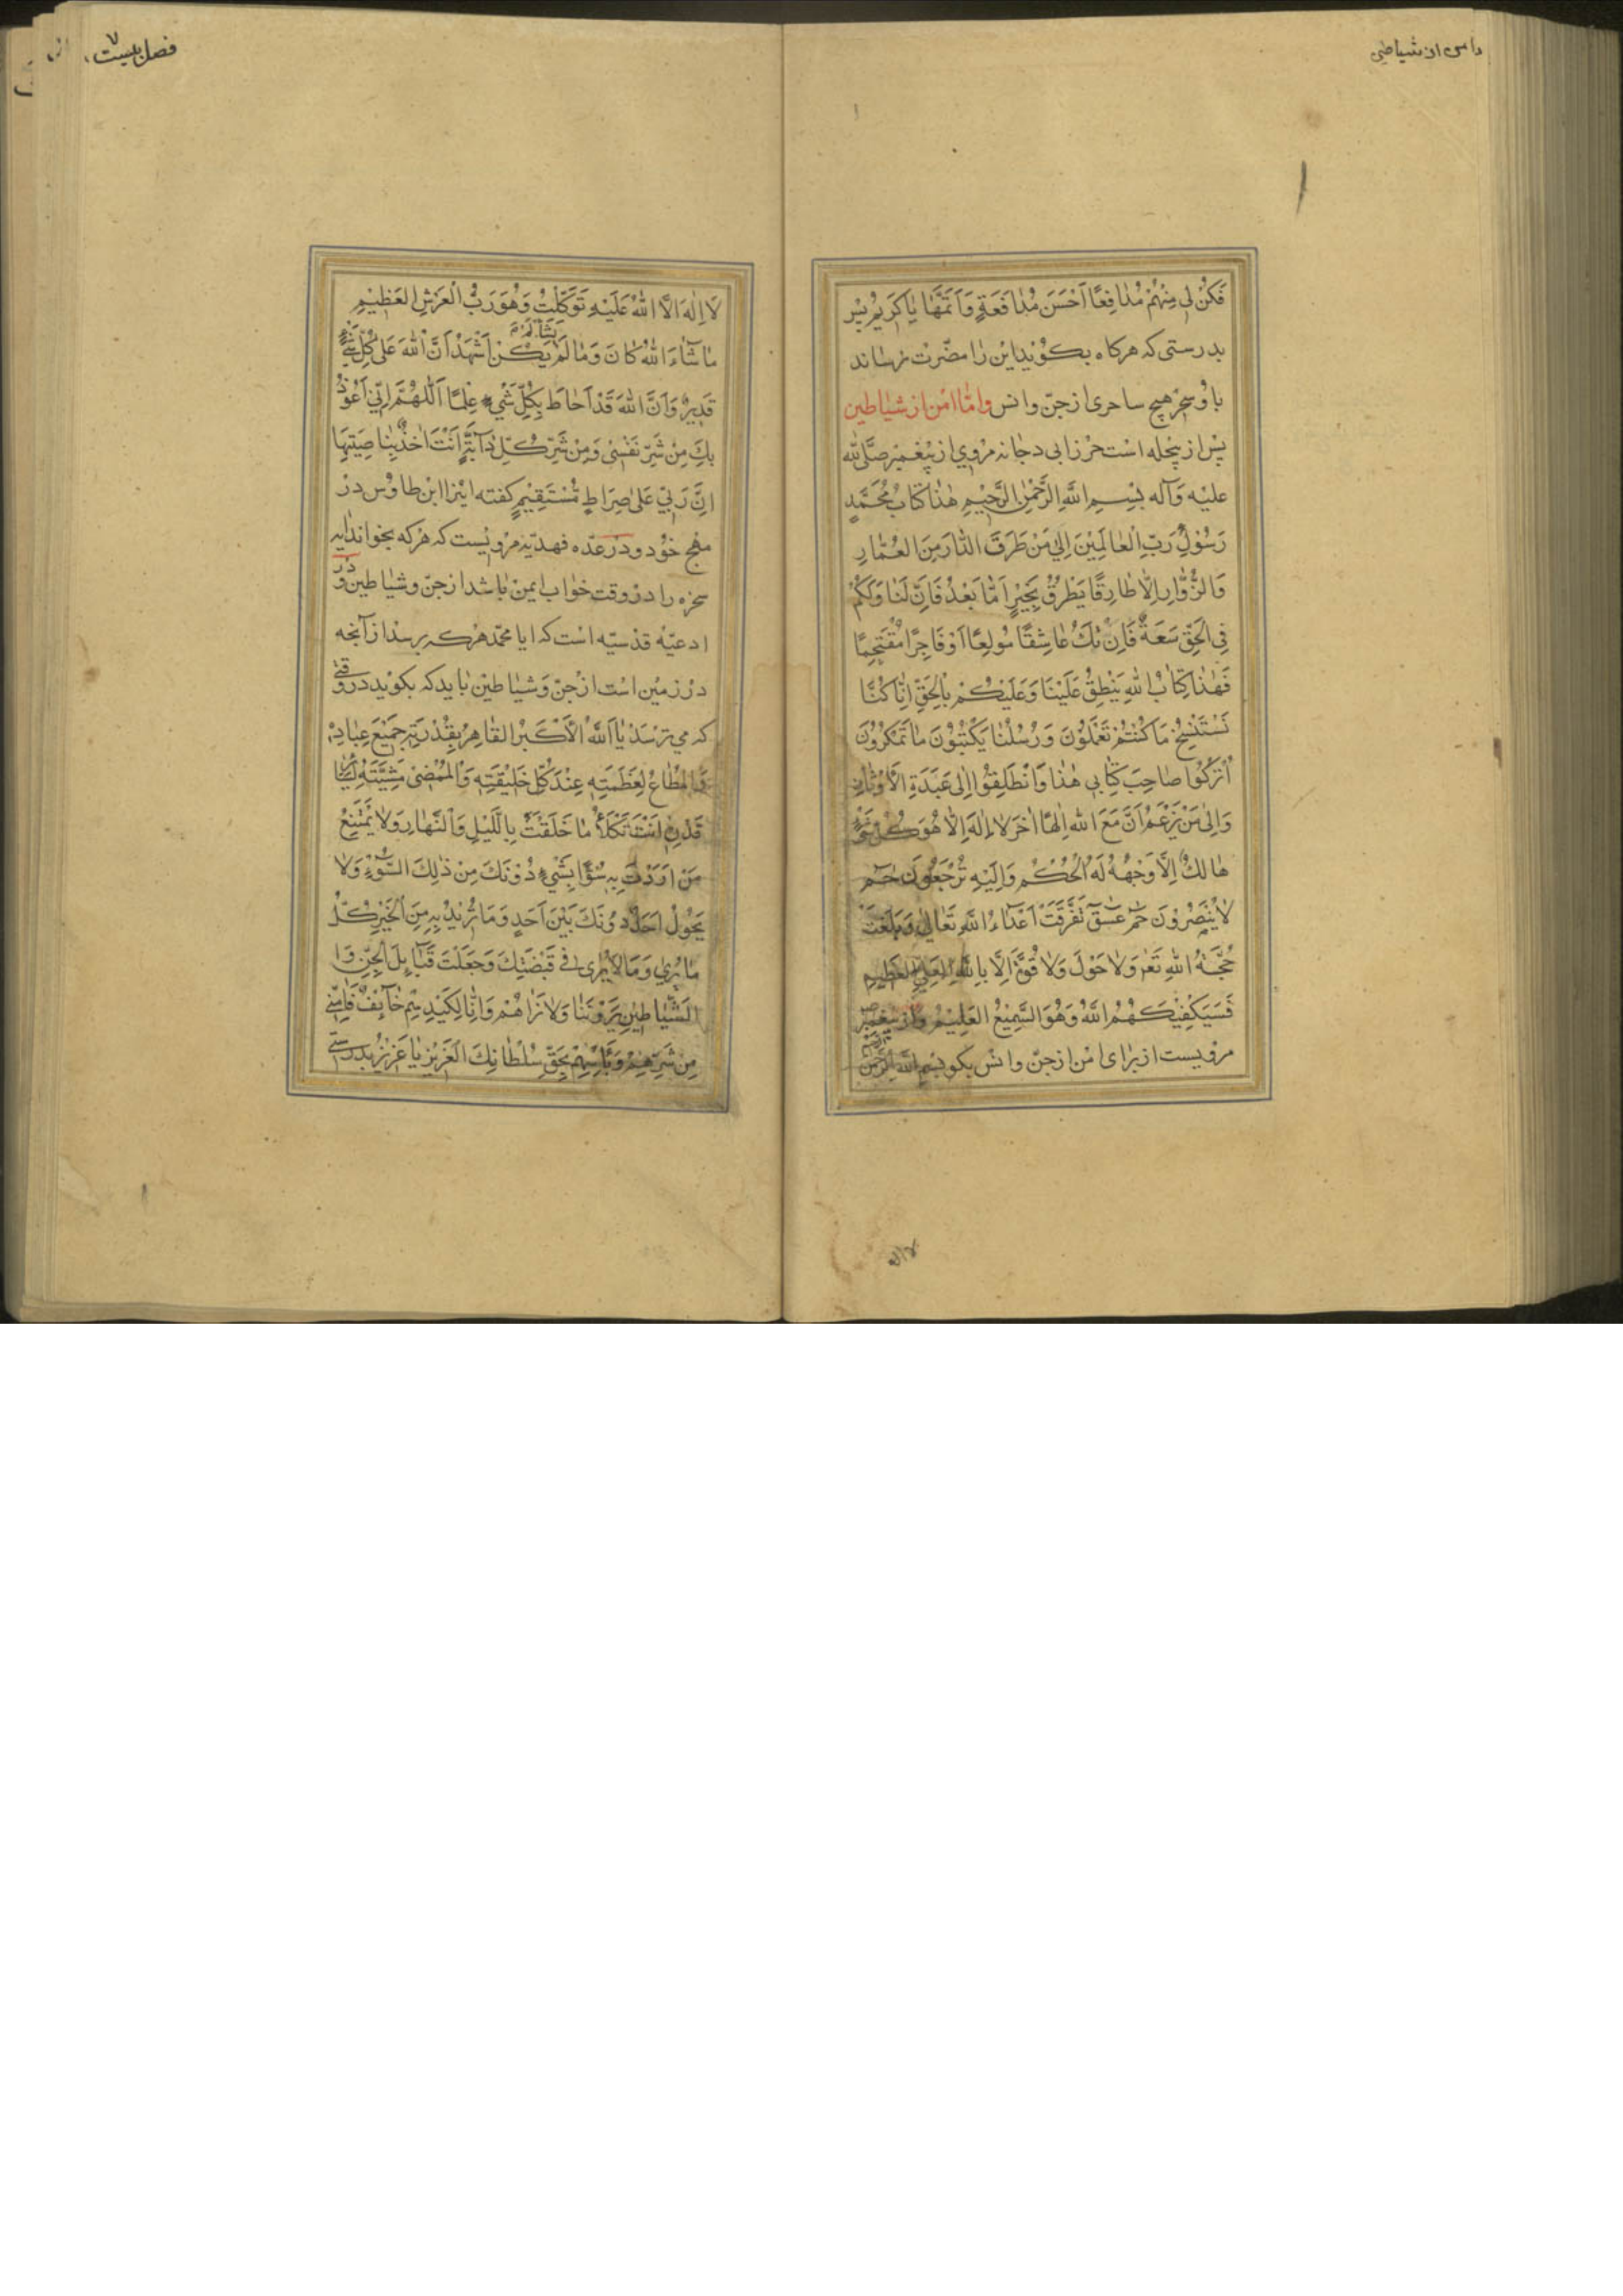 دامن از شیاطین
فَکُنْ لِی مِنْهُمْ مُدٰافِعًا اَحْسَنَ مُدٰافَعَةٍ وَاَتَمَّهٰا یٰا کَرَیٖمُ پس
بدرستی که هرکاه بکوید این رٰا مضرّت نرساند
باو سِحْر هیچ ساحری از جنّ و انس وامّا امْن از شیٰاطین
پس از پنجله است حرز ابی دجانه مروی از پیْغمبْر صَلَّی الله
علیْه وَآله بِسْمِ اللَّهِ الرَّحْمٰنِ الرَّحیٖمِ هٰذٰا کتٰابُ مُحَمَّدٍ
رَسُوْلِ رَبِّ الْعٰالَمِیْنَ اِلٰی مَنْ طَرَقَ الدّٰارَ مِنَ العُمّٰارِ
وَالزُّوّٰارِ اِلّٰا طٰارِقًا یَطْرُقُ بِخَیْرٍ اَمّٰا بَعْدُ فَاِنَّ لَنٰا وَلَکُمْ
فِی الْحَقِّ سَعَةً فَاِنْ تَكُ عٰاشِقًا مُولِعًا اَوْ فٰاجِرًا مُقْتَحِمًا
فَهٰذٰا کِتٰابُ اللهِ یَنْطِقُ عَلَیْنَا وَعَلَیْکُمْ بِالْحَقِّ اِنّٰا کُنّٰا
نَسْتَنْسِخُ مٰا کُنْتُمْ تَعْمَلُوْنَ وَرُسُلُنٰا یَکْتُبُوْنَ مٰا تَمْکُرُوْنَ
اُتْرُکُوا صٰاحِبَ کِتٰابی هٰذٰا وَانْطَلِقُوْا اِلٰی عَبَدَةِ الْاَوْثٰانِ
وَاِلٰی مَنْ یَزْعَمُ اَنَّ مَعَ اللهِ اِلٰهًا اٰخَرَ لٰا اِلٰهَ اِلّٰا هُوَ کُلُّ شَیْءٍ
هٰالِكٌ اِلَّا وَجْهَهُ لَهُ الْحُکْمُ وَاِلَیْهِ تُرْجَعُوْنَ حٰم
لٰا یُنْصَرُوْنَ حٰم عٓسٓقٓ تَفَرَّقَتْ اَعْدٰاءُ اللهِ تَعٰالٰی وَبَلَغَتْ
حُجَّةُ اللهِ تَعٰ وَلٰا حَوْلَ وَلٰا قُوَّةَ اِلَّا بِاللهِ الْعَلِیِّ الْعَظیٖمِ
فَسَیَکْفِیْکَهُمُ اللَّهُ وَهُوَ السَّمِیْعُ الْعَلیْمُ وَاز پیغمبر ص
مرویست از برٰای امْن از جنّ و انس بکو بِسْمِ اللَّهِ الرَّحْمٰنِ الرَّحیم
لا اله
فصل بیست ۷
لَا اِلٰهَ اِلَّا اللهُ عَلَیْهِ تَوَکَّلْتُ وَهُوَ رَبُّ الْعَرْشِ الْعَظیٖمِ
مٰا شٰاءَ اللهُ کٰانَ وَمٰا لَمْ یَشَأْ لَمْ یَکُنْ اَشْهَدُ اَنَّ اللهَ عَلٰی کُلِّ شَیْءٍ
قَدیٖرٌ وَاَنَّ اللهَ قَدْ اَحٰاطَ بِکُلِّ شَیْءٍ عِلْمًا اَللّٰهُمَّ اِنّی اَعُوْذُ
بِكَ مِنْ شَرِّ نَفْسٖی وَمِنْ شَرِّ کُلِّ دٰآبَّةٍ اَنْتَ اٰخِذٌ بِنٰاصِیَتِهَا
اِنَّ رَبّٖی عَلٰی صِرَاطٍ مُسْتَقِیْمٍ کفته اینرا ابن طاوُس درْ
مهج خوْد و در عدّه فهدیّه مرویْست که هرْکه بخواند آیه
سخره را درْ وقت خوٰاب ایمن بٰاشد از جنّ و شیٰاطین و درْ
ادعیّهٔ قدْسیّه اسْت که ایا محمّد هرْکه برسدْ از آنچه
درْ زمیْن اسْت ازْ جنّ وَ شیٰاطیْن بٰاید که بکوْید درْ وقتی
که می ترْسَدْ یٰا اَللّٰهُ الْاَکْبَرُ الْقٰاهِرُ بِقُدْرَتِهٖ جَمیْعَ عِبٰادِهٖ
وَالْمُطٰاعُ لِعَظَمَتِهٖ عِنْدَ کُلِّ خَلِیْقَتِهٖ وَالْمُمْضٖی مَشِیَّتَهُ لِسٰابِقِ
قَدَرِهٖ اَنْتَ تَکْلَأُ مٰا خَلَقْتَ بِاللَّیْلِ وَالنَّهٰارِ وَلٰا یَمْتَنِعُ
مَنْ اَرَدْتَ بِهٖ سُوْءًا بِشَیْءٍ دُوْنَكَ مِنْ ذٰلِكَ السُّوْءِ وَلٰا
یَحُوْلُ اَحَدٌ دُونَكَ بَیْنَ اَحَدٍ وَمٰا تُرِیْدُ بِهٖ مِنَ الْخَیْرِ کُلُّ
مٰا یُرٰی وَمٰا لٰا یُرٰی فی قَبْضَتِكَ وَجَعَلْتَ قَبٰآئِلَ الْجِنِّ وَا
الشَّیٰاطیٖنِ یَرَوْنَنٰا وَلٰا نَرٰاهُمْ وَاَنَا لِکَیْدِهِمْ خٰآئِفٌ فَاٰمِنّٖی
مِنْ شَرِّهِمْ وَبَأْسِهِمْ بِحَقِّ سُلْطٰانِكَ الْعَزیٖزِ یٰا عَزیٖزُ بدرستی